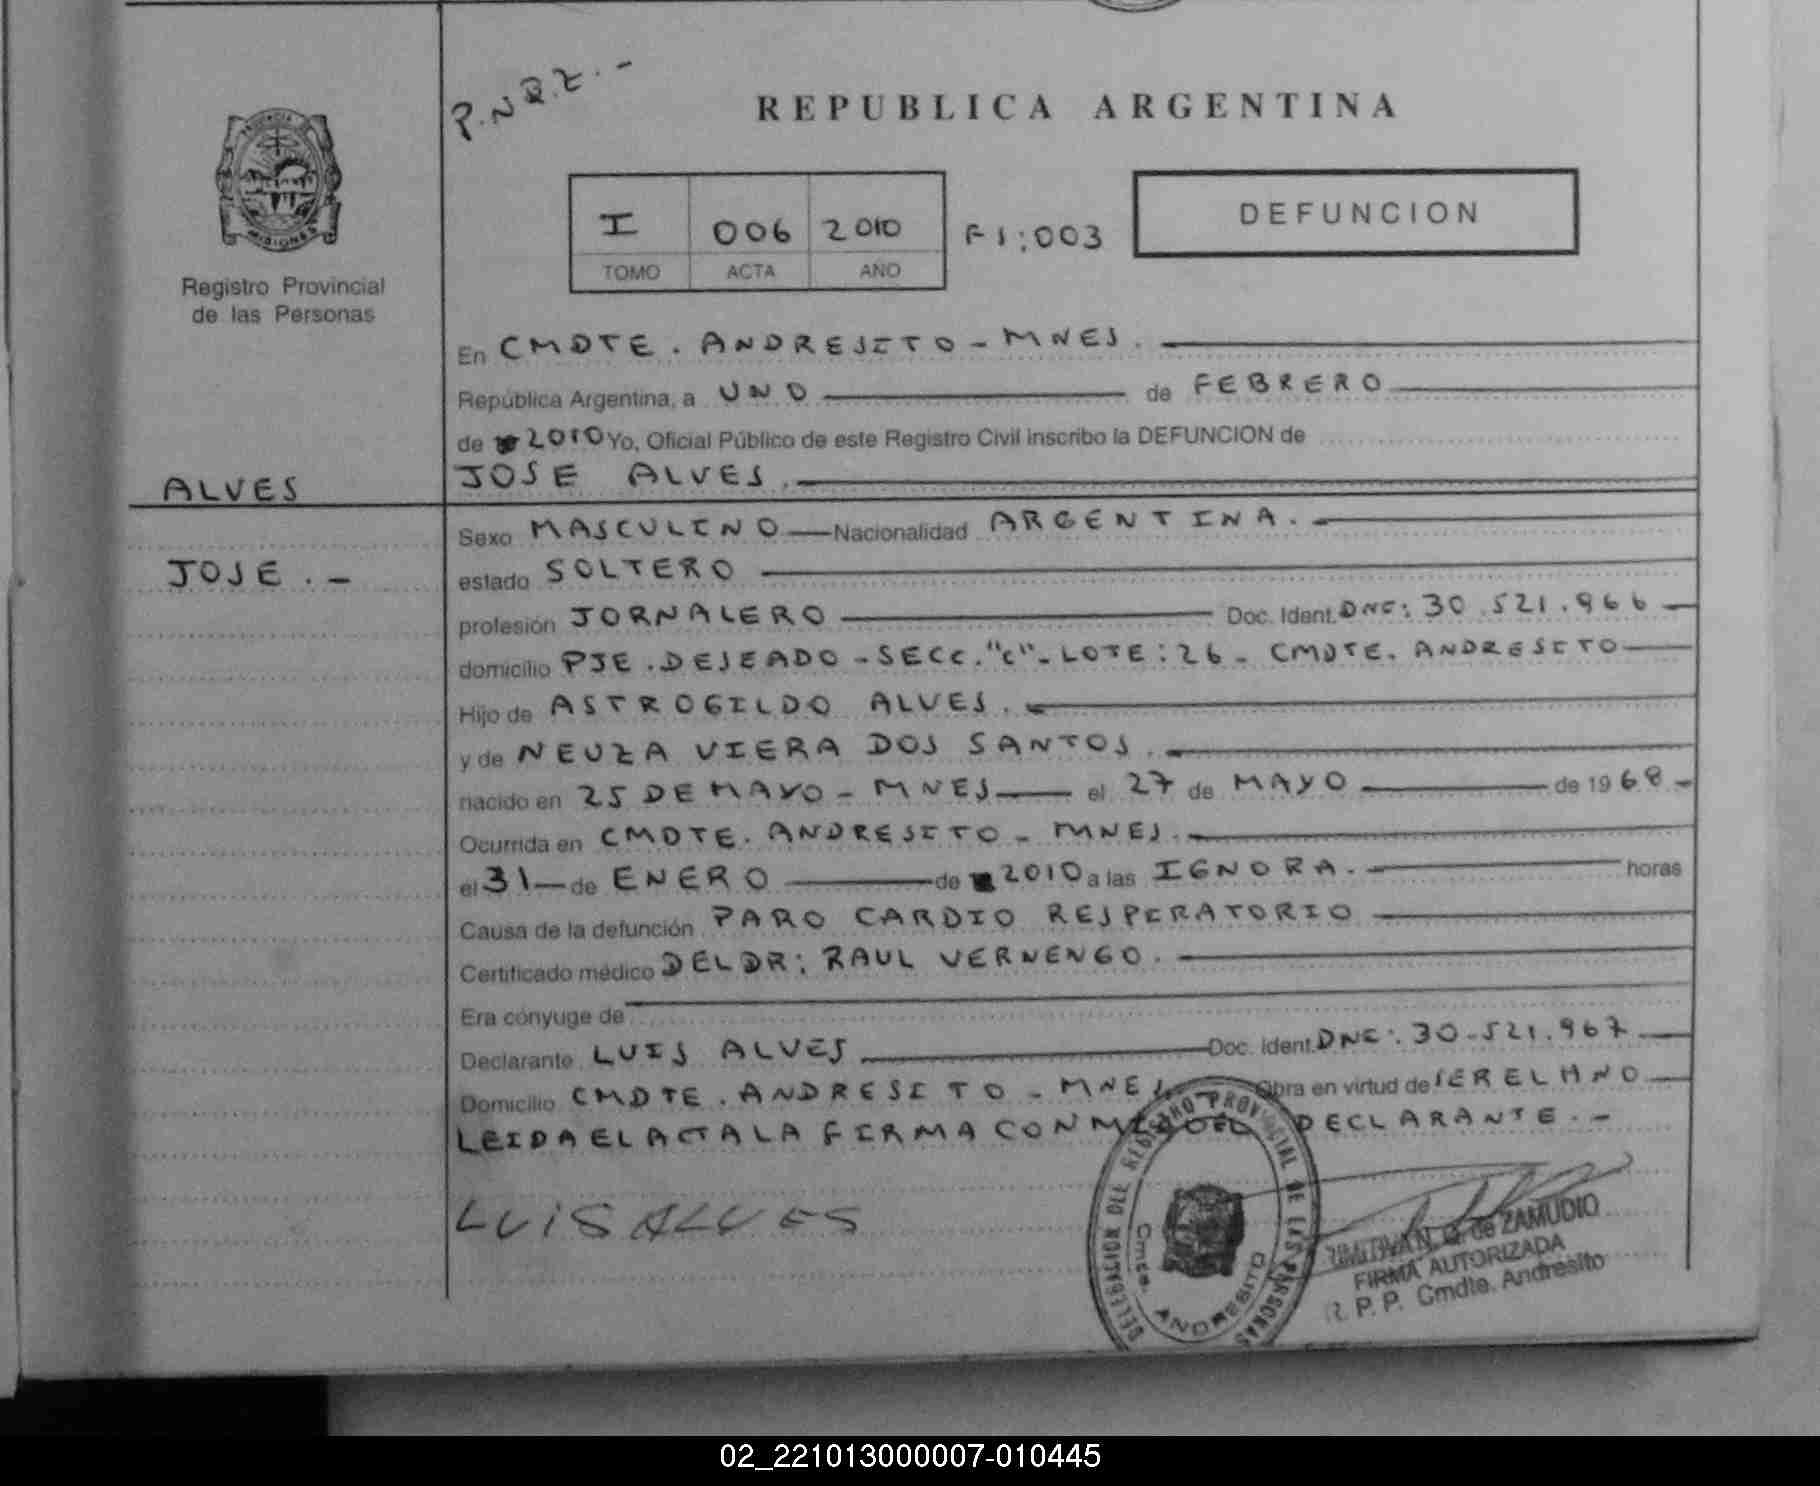 P.N.R.Z.-
REPUBLICA ARGENTINA
PROVINCIA
MISIONES
Registro Provincial
de las Personas
I 006 2010 Fl:003
TOMO ACTA AÑO
DEFUNCION
En CMDTE. ANDRESITO - MNES.
República Argentina, a UNO de FEBRERO
de 2010 Yo, Oficial Público de este Registro Civil inscribo la DEFUNCION de
JOSE ALVES.
ALVES
JOSE.-
Sexo MASCULINO Nacionalidad ARGENTINA.
estado SOLTERO
profesión JORNALERO Doc. Ident. DNI: 30.521.966
domicilio PJE. DESEADO - SECC. "C" - LOTE: 26 - CMDTE. ANDRESITO
Hijo de ASTROGILDO ALVES.
y de NEUZA VIERA DOS SANTOS.
nacido en 25 DE MAYO - MNES el 27 de MAYO de 1968-
Ocurrida en CMDTE. ANDRESITO - MNES.
el 31 de ENERO de 2010 a las IGNORA. horas
Causa de la defunción PARO CARDIO RESPERATORIO
Certificado médico DEL DR: RAUL VERNENGO.
Era cónyuge de
Declarante LUIS ALVES Doc. Ident. DNI: 30.521.967
Domicilio CMDTE. ANDRESITO - MNES Obra en virtud de SER EL HNO
LEIDA EL ACTA LA FIRMA CONMIGO EL DECLARANTE.-
LUIS ALVES
DELEGACION DEL REGISTRO PROVINCIAL DE LAS PERSONAS
Cmte. ANDRESITO
N. G. de ZAMUDIO
FIRMA AUTORIZADA
R. P. P. Cmdte. Andresito
02_221013000007-010445